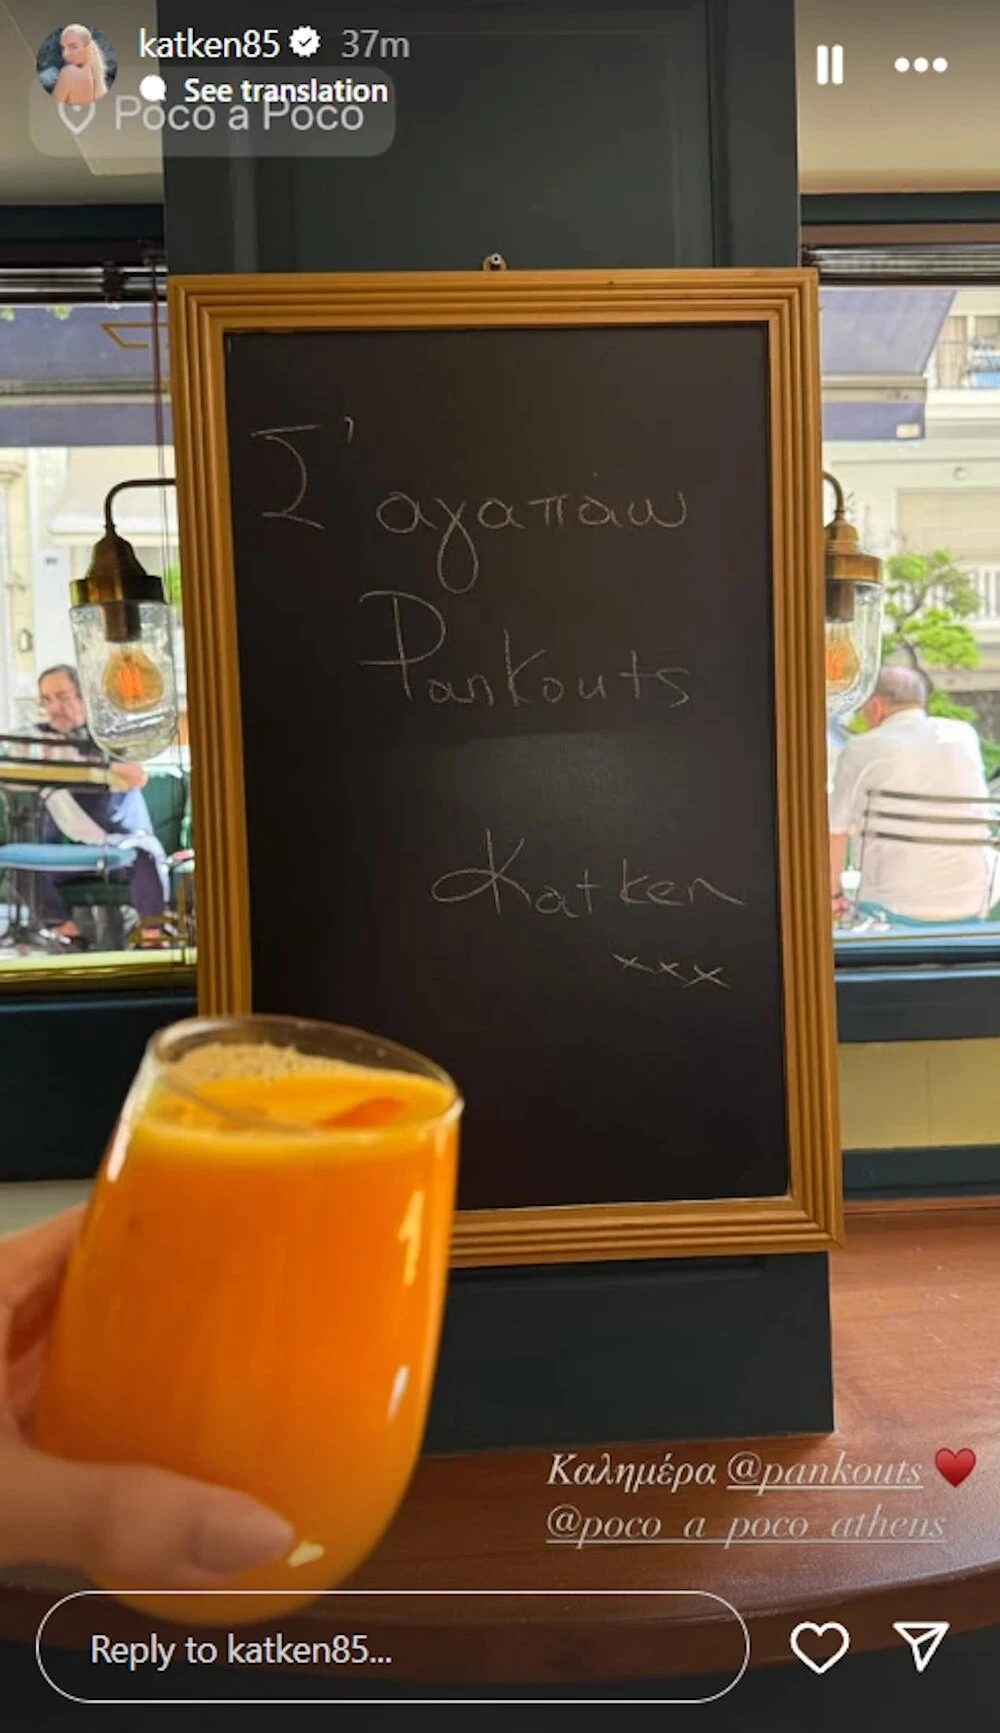 katken85 37m
See translation
Poco a Poco
Σ' αγαπάω
Pankouts
Katken
xxx
Καλημέρα @pankouts ♥️
@poco_a_poco_athens
Reply to katken85...